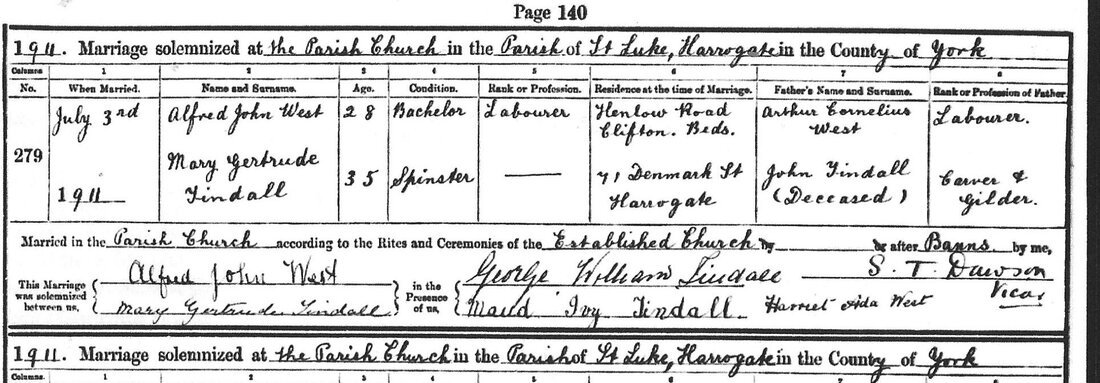 Page 140
1911. Marriage solemnized at the Parish Church in the Parish of St Luke, Harrogate in the County of York
Columns 1 2 3 4 5 6 7 8
No. When Married. Name and Surname. Age. Condition. Rank or Profession. Residence at the time of Marriage. Father's Name and Surname. Rank or Profession of Father.
279
July 3rd
1911
Alfred John West
28 Bachelor Labourer
Henlow Road
Clifton. Beds.
Arthur Cornelius
West
Labourer.
Mary Gertrude
Tindall
35 Spinster
71 Denmark St
Harrogate
John Tindall
(Deceased)
Carver &
Gilder.
Married in the Parish Church according to the Rites and Ceremonies of the Established Church by or after Banns by me,
This Marriage
was solemnized
between us,
Alfred John West
Mary Gertrude Tindall
in the
Presence
of us,
George William Tindall
Maud Ivy Tindall Harriet Ada West
S. T. Dawson
Vicar
1911. Marriage solemnized at the Parish Church in the Parish of St Luke, Harrogate in the County of York
Columns. 1 2 3 4 5 6 7 8